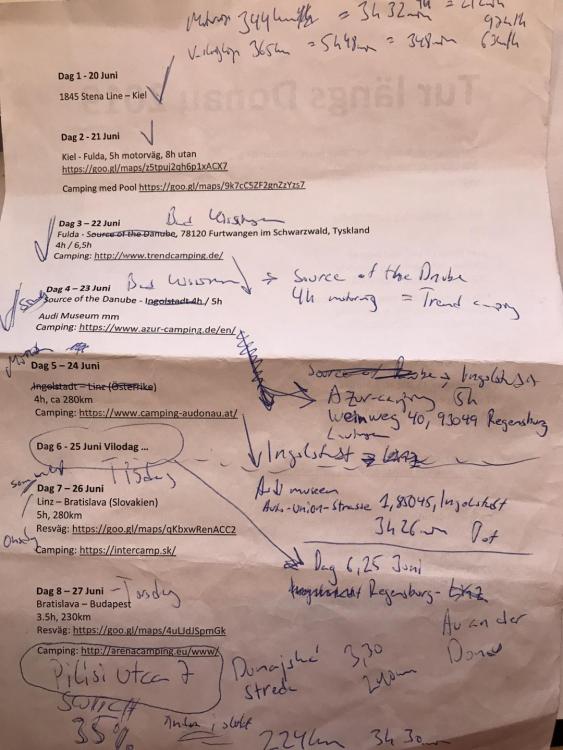 Motorv 344km = 3h 32m
365km = 5h48m = 348m 63km/h
Tur längs Donau 2019
Dag 1 - 20 Juni
1845 Stena Line – Kiel
Dag 2 - 21 Juni
Kiel - Fulda, 5h motorväg, 8h utan
https://goo.gl/maps/z5tpuj2qh6p1xACX7
Camping med Pool https://goo.gl/maps/9k7cC5ZF2gnZzYzs7
Bad
Dag 3 – 22 Juni
Fulda - Source of the Danube, 78120 Furtwangen im Schwarzwald, Tyskland
4h / 6,5h
Camping: http://www.trendcamping.de/
Dag 4 – 23 Juni Bad → Source of the Danube
Source of the Danube - Ingolstadt 4h / 5h
4h motorväg = Trend camping
Audi Museum mm
Camping: https://www.azur-camping.de/en/
Dag 5 – 24 Juni
→ Ingolstadt
Ingolstadt – Linz (Österrike)
Azur-camping 5h
4h, ca 280km
Weinweg 40, 93049 Regensburg
Camping: https://www.camping-audonau.at/
Dag 6 - 25 Juni Vilodag ...
Ingolstadt → Linz
Tisdag
Dag 7 – 26 Juni
Linz – Bratislava (Slovakien)
Audi museum
Auto-Union-Strasse 1, 85045, Ingolstadt
5h, 280km
3h 26m
Resväg: https://goo.gl/maps/qKbxwRenACC2
Onsdag
Camping: https://intercamp.sk/
Dag 6, 25 Juni
Regensburg - Linz
Dag 8 – 27 Juni - Torsdag
Bratislava – Budapest
3.5h, 230km
Resväg: https://goo.gl/maps/4uLJdJSpmGk
Au an der
Donau
Camping: http://arenacamping.eu/www/
Pilisi utca 7
Dunajská 3,30
Streda
35%
224km 3h 30m